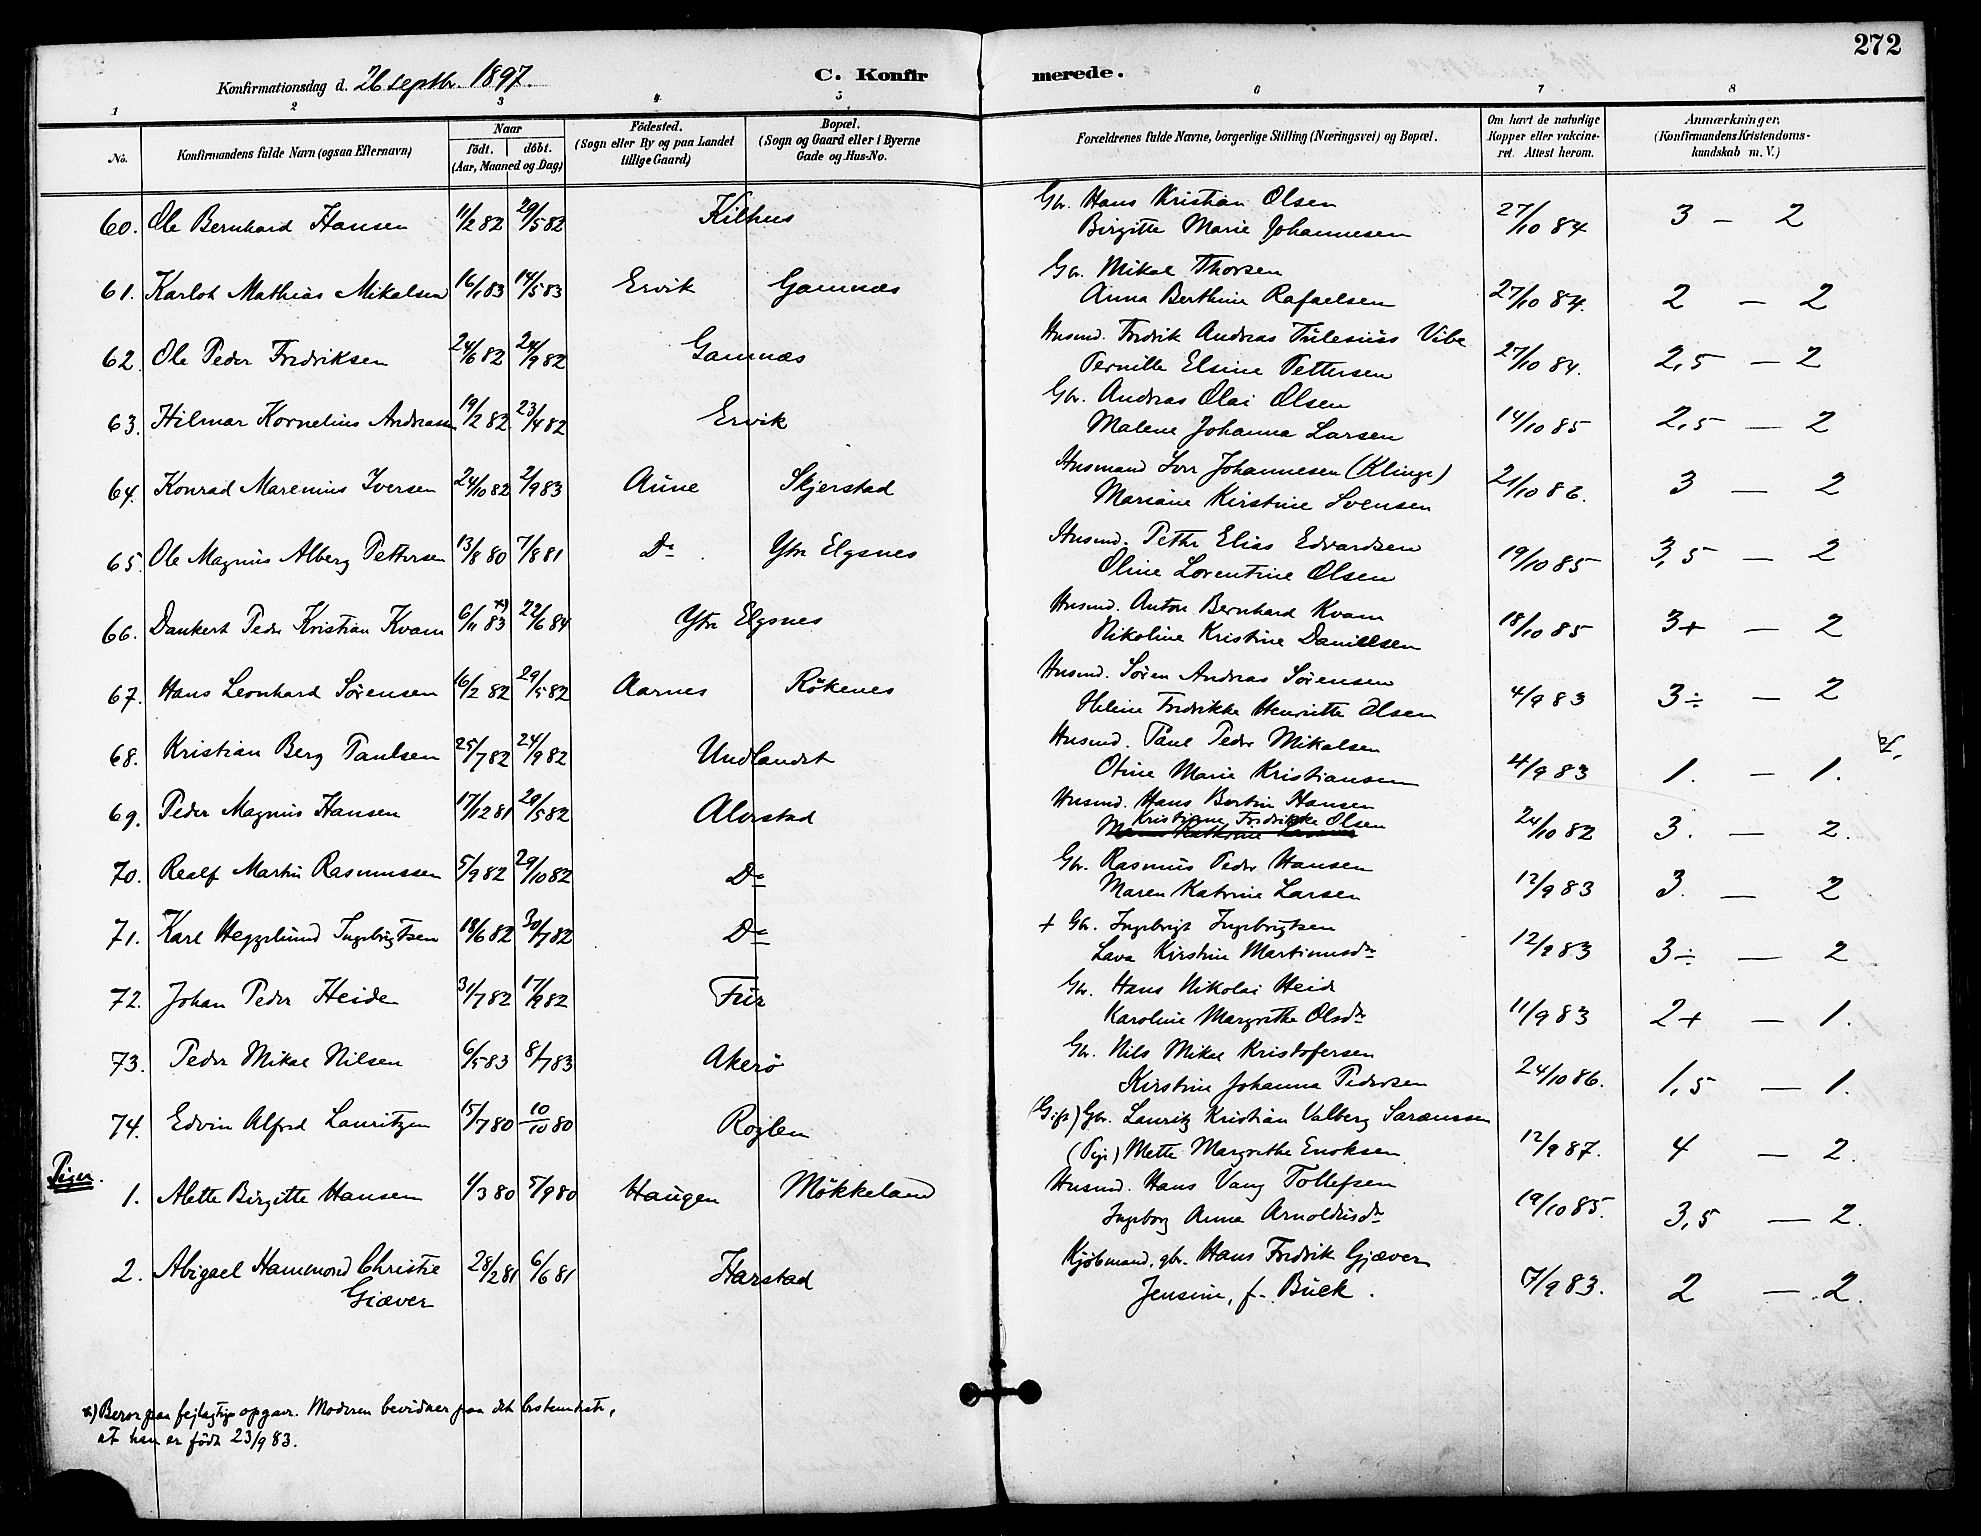 272
Konfirmationsdag d. 26 septbr. 1897.
C. Konfirmerede.
1 2 3 4 5 6 7 8
No. Konfirmandens fulde Navn (ogsaa Efternavn) Naar födt. döbt. (Aar, Maaned og Dag) Födested. (Sogn eller By og paa Landet tillige Gaard) Bopæl. (Sogn og Gaard eller i Byerne Gade og Hus-No. Forældrenes fulde Navne, borgerlige Stilling (Næringsvei) og Bopæl. Om havt de naturlige Kopper eller vakcineret. Attest herom. Anmærkninger. (Konfirmandens Kristendomskundskab m. V.)
60. Ole Bernhard Hansen 11/2 82 29/5 82 Kilhus Gbr. Hans Kristian Olsen
Birgitte Marie Johannesen 27/10 84 3 – 2
61. Karlot Mathias Mikalsen 16/1 83 14/5 83 Ervik Gamnæs Gbr. Mikal Thorsen
Anna Berthine Rafaelsen 27/10 84. 2 – 2
62. Ole Peder Fredriksen 24/6 82 24/9 82 Gamnæs Husmd. Fredrik Andreas Tulesius Vibe
Pernille Elsine Pettersen 27/10 84. 2,5 – 2
63. Hilmar Kornelius Andreasen 19/2 82 23/4 82 Ervik Gbr. Andreas Olai Olsen
Malene Johanna Larsen 14/10 85 2,5 – 2
64. Konrad Marenius Iversen 24/10 82 2/9 83 Aune Skjerstad Husmand Iver Johannesen (Klinge)
Mariane Kirstine Svensen 21/10 86. 3 – 2
65. Ole Magnus Alberg Pettersen 13/8 80 7/8 81 Do Ytre Elgsnes Husmd. Petter Elias Edvardsen
Oline Lorentine Olsen 19/10 85 3,5 – 2
66. Dankert Peder Kristian Kvam 6/11 83 x) 22/6 84 Ytre Elgsnes Husmd. Anton Bernhard Kvam
Nikoline Kristine Danielsen 18/10 85 3+ – 2
67. Hans Leonhard Sørensen 16/2 82 29/5 82 Aarnes Rökenes Husmd. Søren Andreas Sørensen
Heline Fredrikke Henriette Olsen 4/9 83 3÷ – 2
68. Kristian Berg Paulsen 25/7 82 24/9 82 Undlandet Husmd. Paul Peder Mikalsen
Otine Marie Kristiansen 4/9 83 1. – 1.
69. Peder Magnus Hansen 17/12 81 29/5 82 Alvestad Husmd. Hans Bertin Hansen
Kristiane Fredrikke Olsen 24/10 82 3. – 2.
70. Realf Martin Rasmussen 5/9 82 29/10 82 Do Gbr. Rasmus Peder Hansen
Maren Katrine Larsen 12/9 83 3. – 2
71. Karl Heggelund Ingebrigtsen 18/6 82 30/7 82 Do + Gbr. Ingebrigt Ingebrigtsen
Lava Kirstine Martinusdr 12/9 83 3÷ – 2
72. Johan Peder Heide 31/7 82 17/9 82 Fur Gbr. Hans Nikolai Heid
Karoline Margrethe Olsdr 11/9 83 2+ – 1.
73. Peder Mikal Nilsen 6/5 83 8/7 83 Akerö Gbr. Nils Mikal Kristofersen
Kirstine Johanna Pedersen 24/10 86. 1,5 – 1.
74. Edvin Alfred Lauritzen 15/7 80 10/10 80 Röglen (Gift) Gbr. Lauritz Kristian Valberg Sarænssen
(Pige) Mette Margrethe Enoksen 12/9 87. 4 – 2.
Piger.
1. Alette Birgitte Hansen 1/3 80 5/9 80 Haugen Mökkeland Husmd. Hans Vang Tollefsen
Ingeborg Anna Arnoldusdr 19/10 85. 3,5 – 2.
2. Abigael Hammond Christie
Giæver 28/2 81 6/6 81 Harstad Kjöbmand, gbr. Hans Fredrik Gjæver
Jensine, f. Buck. 7/9 83. 2 – 2.
x) Beror paa fejlagtige opgave. Moderen bevidner paa det bestemteste,
at han er födt 23/9 83.